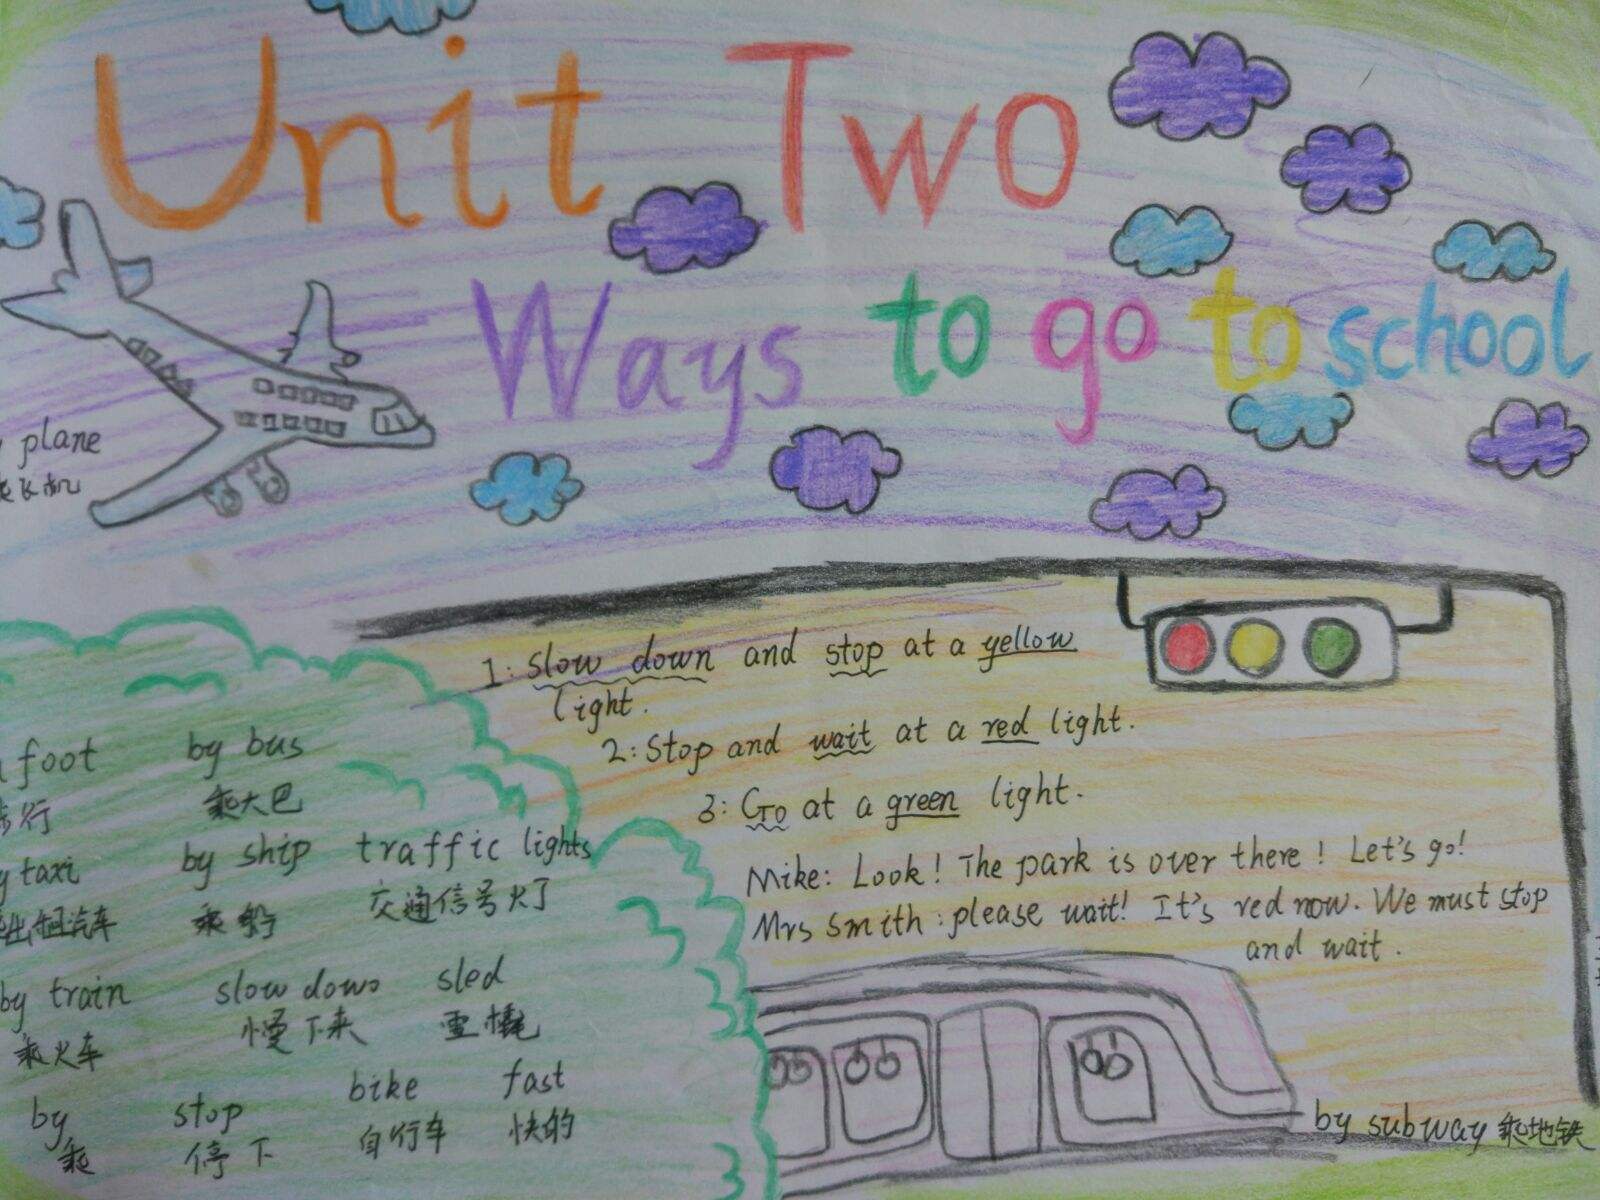 Unit Two
Ways to go to school
plane
飞机
1: Slow down and stop at a yellow
light.
2: Stop and wait at a red light.
3: Go at a green light.
Mike: Look! The park is over there! Let's go!
Mrs Smith: please wait! It's red now. We must stop
and wait.
foot by bus
步行 乘大巴
taxi by ship traffic lights
出租汽车 乘船 交通信号火丁
by train slow down sled
乘火车 慢下来 雪橇
by stop bike fast
乘 停下 自行车 快的
by subway 乘地铁